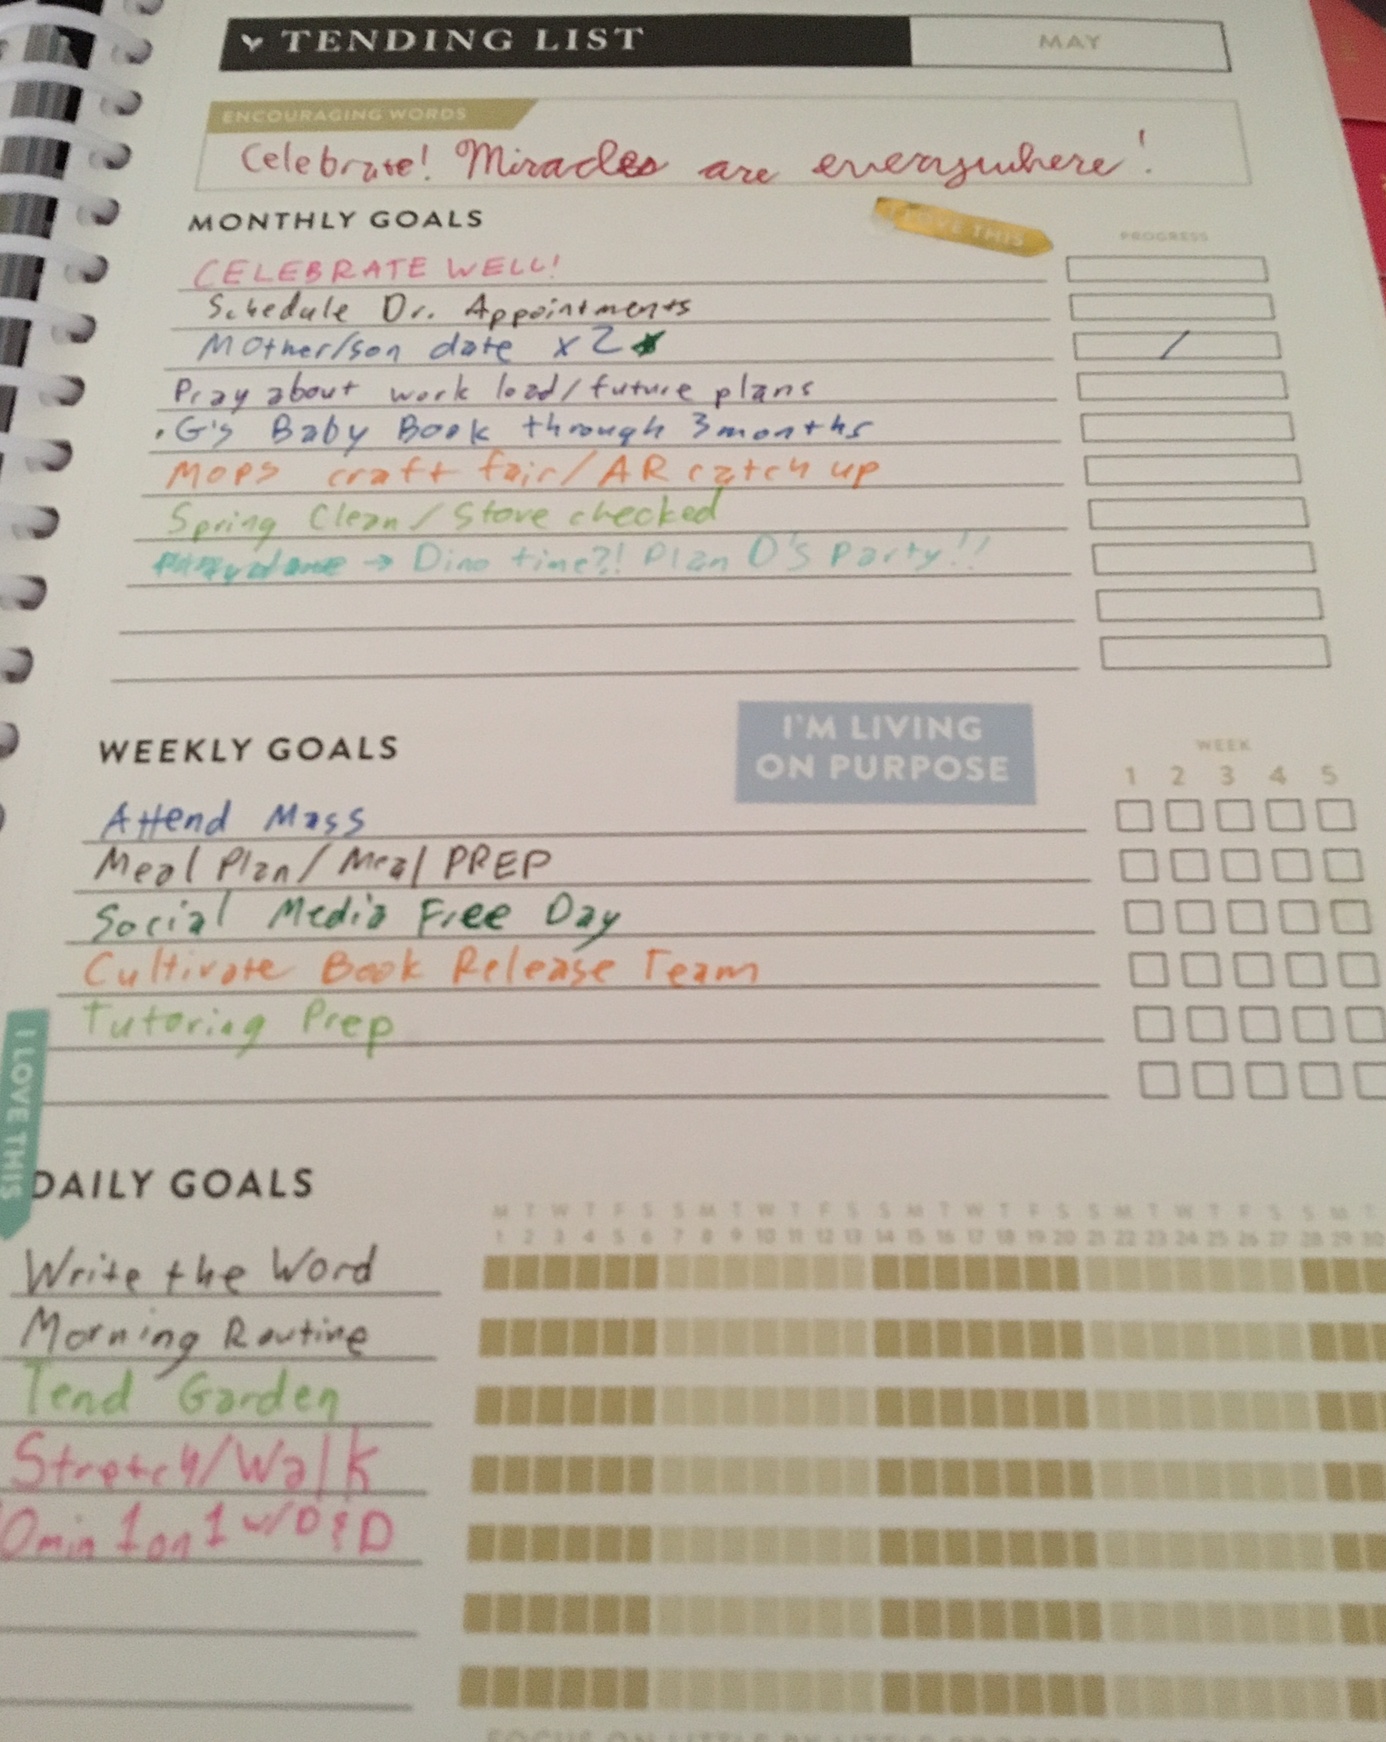 TENDING LIST
MAY
ENCOURAGING WORDS
Celebrate! Miracles are everywhere!
MONTHLY GOALS
I LOVE THIS
PROGRESS
CELEBRATE WELL!
Schedule Dr. Appointments
Mother/son date x 2
Pray about work load/future plans
. G's Baby Book through 3 months
MOPS craft fair/AR catch up
Spring Clean/Stove checked
→ Dino time?! Plan D'S Party!!
WEEKLY GOALS
I'M LIVING
ON PURPOSE
WEEK
1 2 3 4 5
Attend Mass
Meal Plan/Meal PREP
Social Media Free Day
Cultivate Book Release Team
Tutoring Prep
I LOVE THIS
DAILY GOALS
M T W T F S S M T W T F S S M T W T F S S M T W T F S S M T
1 2 3 4 5 6 7 8 9 10 11 12 13 14 15 16 17 18 19 20 21 22 23 24 25 26 27 28 29 30
Write the Word
Morning Routine
Tend Garden
Stretch/Walk
0min 1 on 1 w/D & D
FOCUS ON LITTLE BY LITTLE PROGRESS